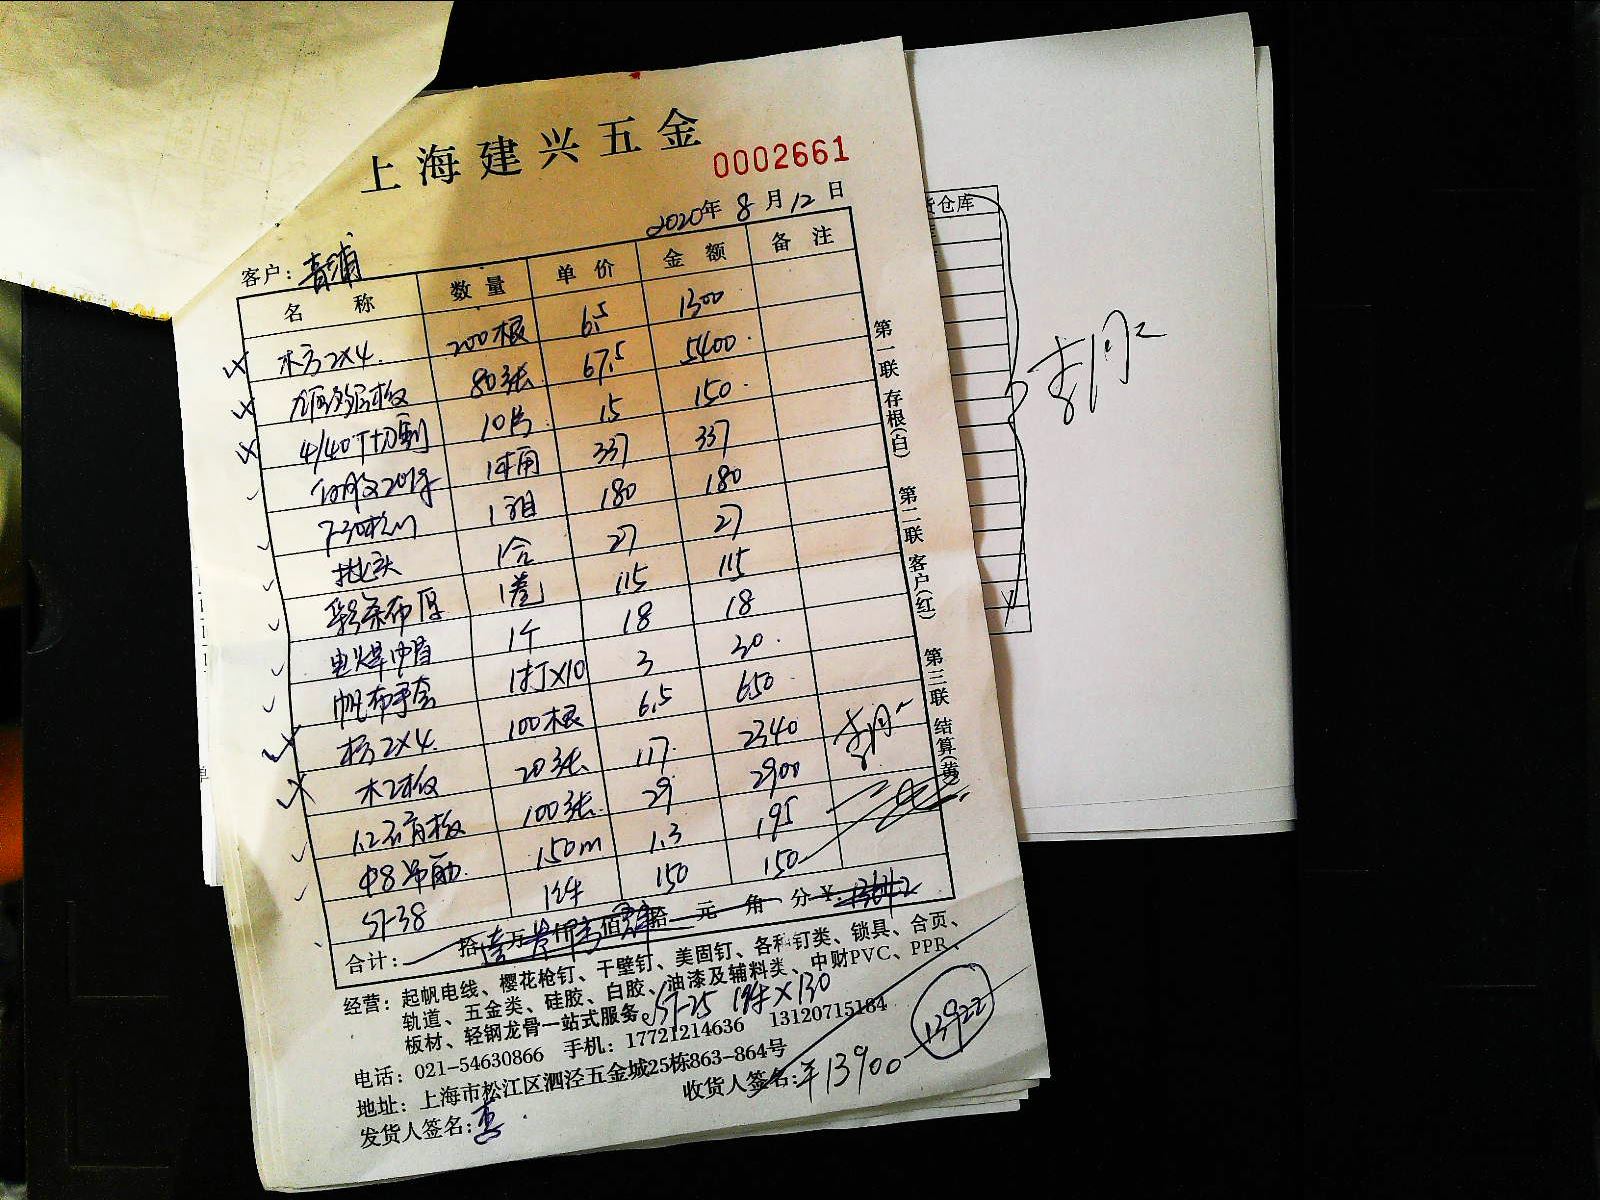 上海建兴五金
0002661
2020年 8 月 12 日
客户：青浦
名 称 数 量 单 价 金 额 备 注
木方2×4. 200根 6.5 1300
多层板 80张 67.5 5400
切割 10片 15 150
1桶 337 337
1组 180 180
批头 1合 27 27
彩条布 厚 1卷 115 115
电焊巾冒 1个 18 18
帆布手套 1打×10 3 30
木方2×4 100根 6.5 650
木工板 20张 117 2340
1.2石膏板 100张 29 2900
φ8吊筋 150m 1.3 195
ST-38 1件 150 150
合计： 拾 万 仟 佰 拾 元 角 分 ¥
第一联 存根(白) 第二联 客户(红) 第三联 结算(黄
经营：起帆电线、樱花枪钉、干壁钉、美固钉、各种钉类、锁具、合页、
轨道、五金类、硅胶、白胶、油漆及辅料类、中财PVC、PPR、
板材、轻钢龙骨一站式服务。
ST-25 1件×130
电话：021-54630866 手机：17721214636 13120715184
13922
地址：上海市松江区泗泾五金城25栋863-864号
发货人签名：
收货人签名：
¥13900
货仓库